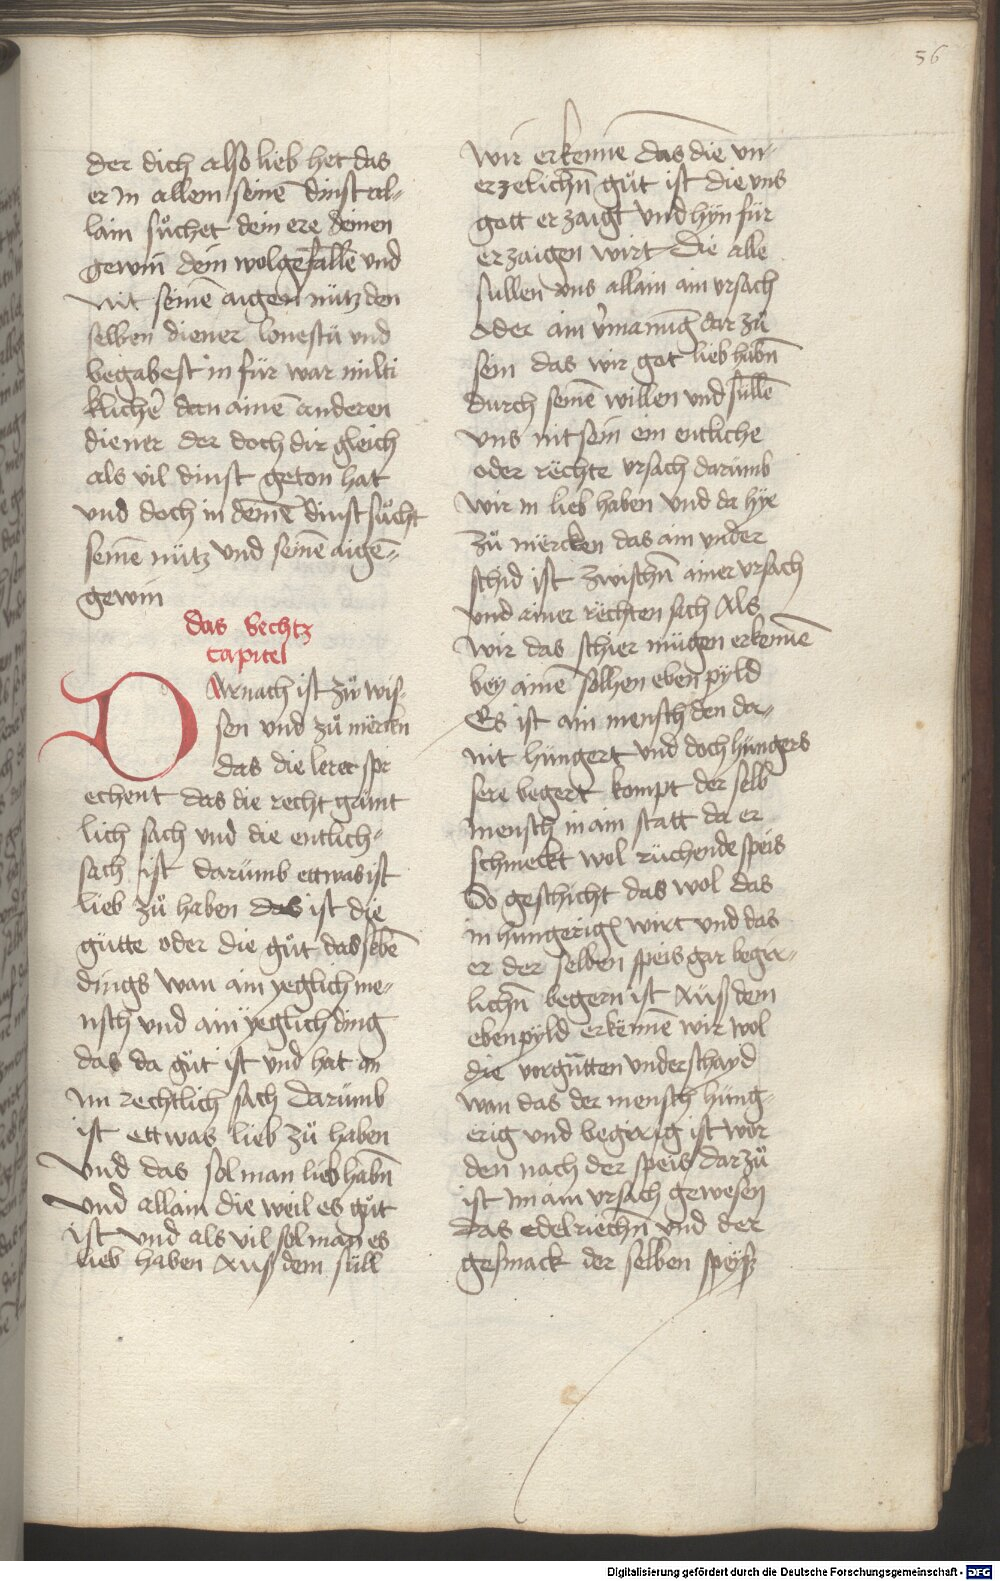 56
der dich also lieb het das
er in allem seinē dinst al-
lain sůchet dein ere deinen
gewin dein wolgefallē und
nit seinē aigen nütz den
selben diener lonestu und
begabest in für war milti
klichē dan ainē anderen
diener der doch dir gleich
als vil dinst geton hat
und doch in deinē dinst sůcht
seinē nütz und seinē aigē-
gewin
das Sechtz
Capitel
DArnach ist zů wis-
sen und zů mërckn
das die lerer spr
echent das die recht gäntz
lich sach und die entlich-
sach ist darumb ettwas ist
lieb zů haben das ist die
gütte oder die gůt das selbē
dings wan ain yeglich me-
nsch und ain yeglich ding
das da gůt ist und hat an
im rechtlich sach darumb
ist ettwas lieb zů haben
Und das sol man lieb habn̄
und allain die weil es gůt
ist und als vil sol man es
lieb haben Aus dem süll
wir erkennē das die vn-
erzelichn̄ gůt ist die vns
gott erzaigt und hyn für
erzaigen wirt Die alle
sullen vns allain ain ursach
oder ain v̄manūg dar zů
sein das wir got lieb habn̄
durch seinē willen und süllē
vns nit sein ein entliche
oder rëchte ursach darumb
wir in lieb haben Und da hye
zů mërcken das ain under
schid ist zwischn̄ ainer ursach
und ainer rëchten sach Als
wir das schier mügen erkennē
bey ainē solhen ebenpyld
Es ist ain mensch den da-
nit hüngert und doch hüngers
sere begert kompt der selb
mensch in ain statt da er
schmeckt wol rüchende speis
So geschicht das wol das
in hungerig wirt und das
er der selben speis gar begir-
lichn̄ begern ist Aüs dem
ebenpyld erkënnē wir wol
die vorgütten underschayd
wan das der mensch hüng-
erig und begirig ist wor
den nach der speis darzů
ist im ain ursach gewesen
das edelriechn̄ und der
gesmack der selben speyß
Digitalisierung gefördert durch die Deutsche Forschungsgemeinschaft - DFG